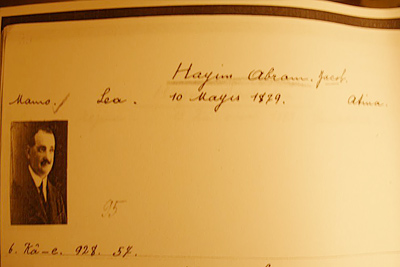 Hayim Abram. Jacob.
Mamo. / Lea. 10 Mayıs 1879. Atina.
95
6. Kâ-e. 928. 57.